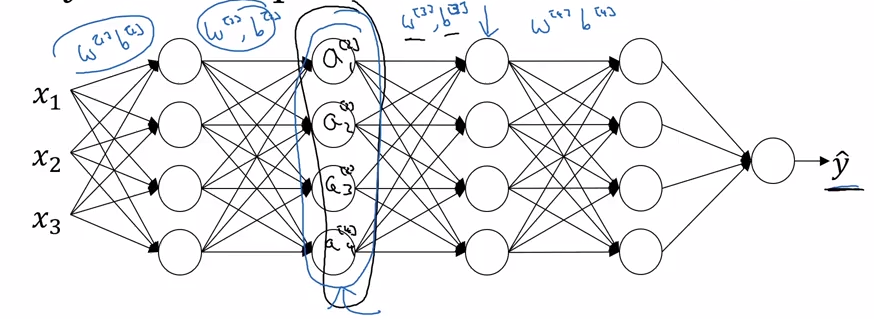 w[1] b[1] w[2], b[2] w[3], b[3] w[4] b[4]
x1
x2
x3
a1[2]
a2[2]
a3[2]
a4[2]
ŷ